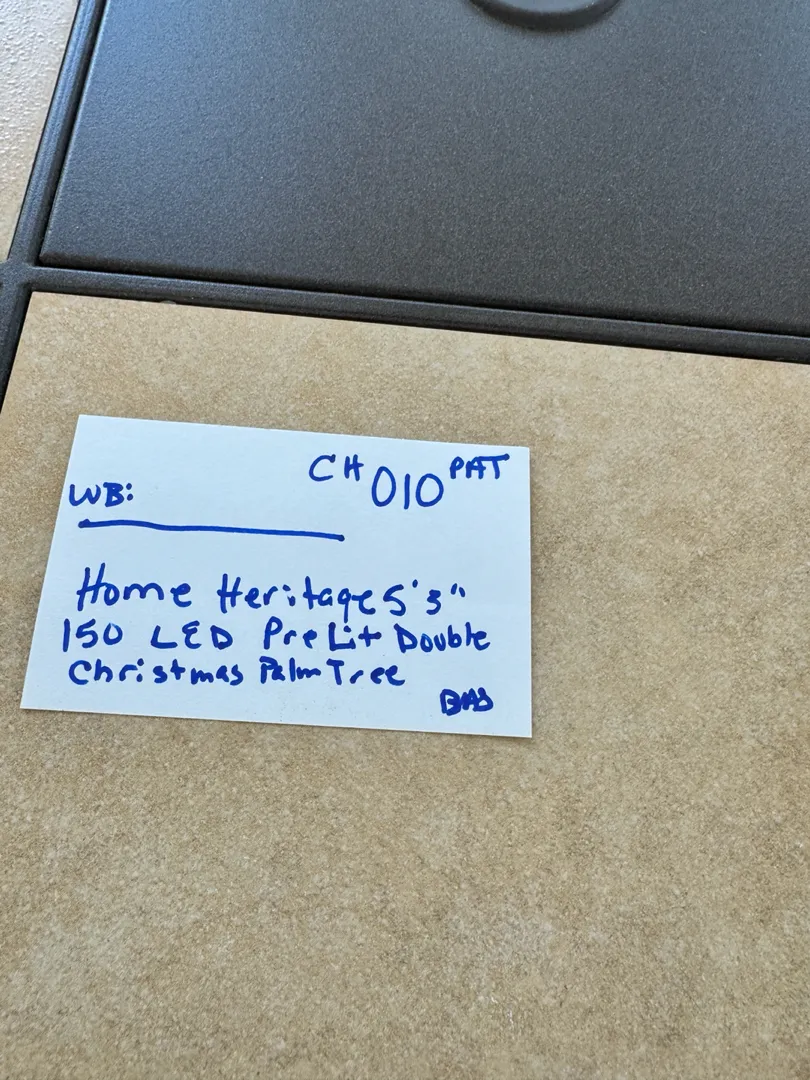 CH 010 PAT
WB:
Home Heritage 5'3"
150 LED PreLit Double
Christmas Palm Tree